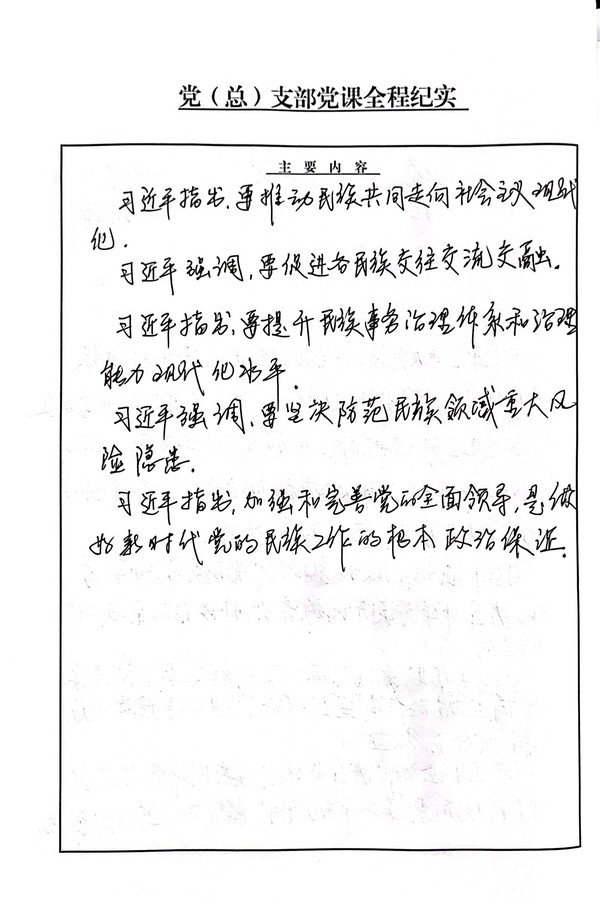 党（总）支部党课全程纪实
主要内容
习近平指出,要推动民族共同走向社会主义现代
化.
习近平强调,要促进各民族交往交流交融.
习近平指出,要提升民族事务治理体系和治理
能力现代化水平.
习近平强调,要坚决防范民族领域重大风
险隐患.
习近平指出,加强和完善党的全面领导,是做
好新时代党的民族工作的根本政治保证.